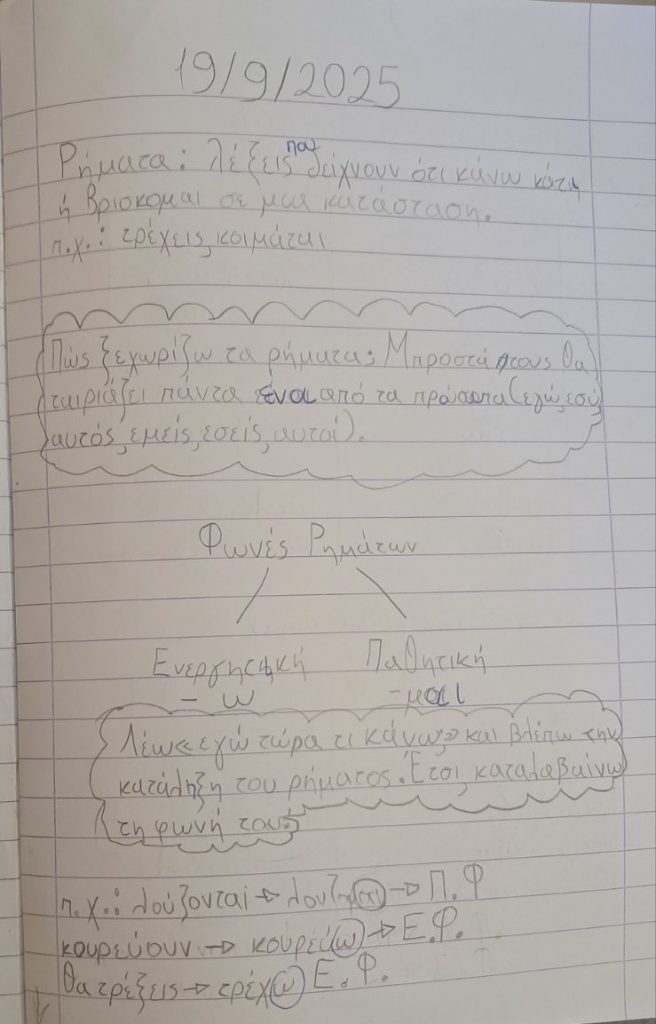 19/9/2025
Ρήματα: λέξεις που δείχνουν ότι κάνω κάτι
ή βρίσκομαι σε μια κατάσταση.
π.χ.: τρέχεις, κοιμάται
Πώς ξεχωρίζω τα ρήματα; Μπροστά τους θα
ταιριάζει πάντα ένα από τα πρόσωπα (εγώ, εσύ,
αυτός, εμείς, εσείς, αυτοί).
Φωνές Ρημάτων
Ενεργητική Παθητική
-ω -μαι
Λέω «εγώ τώρα τι κάνω;» και βλέπω την
κατάληξη του ρήματος. Έτσι, καταλαβαίνω
τη φωνή του.
π.χ.: λούζονται → λούζομαι → Π.Φ
κουρεύουν → κουρεύω → Ε.Φ.
θα τρέξεις → τρέχω Ε.Φ.